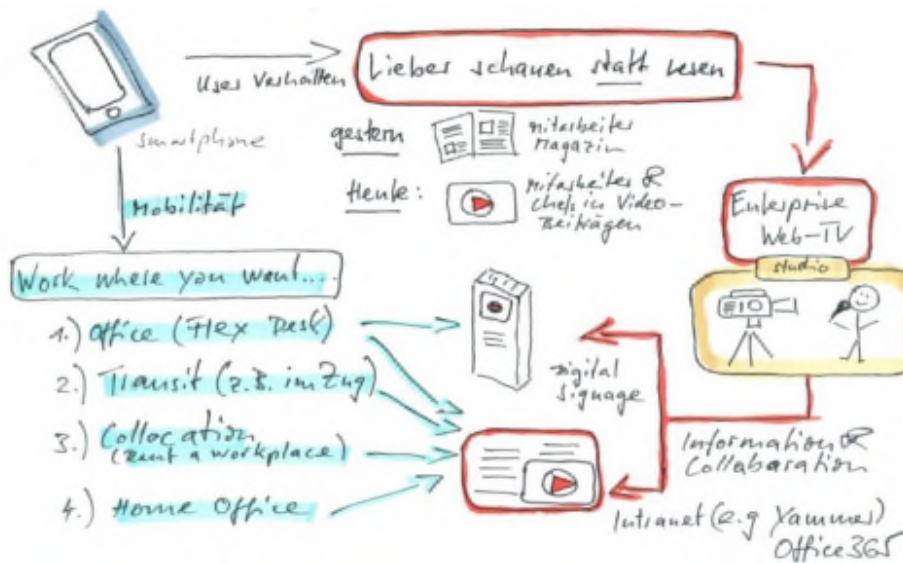 User Verhalten
Lieber schauen statt lesen
Smartphone
gestern
Mitarbeiter
Magazin
Heute:
Mitarbeiter &
Chefs in Video-
Beiträgen
Mobilität
Enterprise
Web-TV
Studio
Work where you want....
1.) Office (Flex Desk)
2.) Transit (z.B. im Zug)
3.) Collocation
(Rent a workplace)
4.) Home Office
Digital
Signage
Information &
Collabaration
Intranet (e.g Yammer)
Office 365